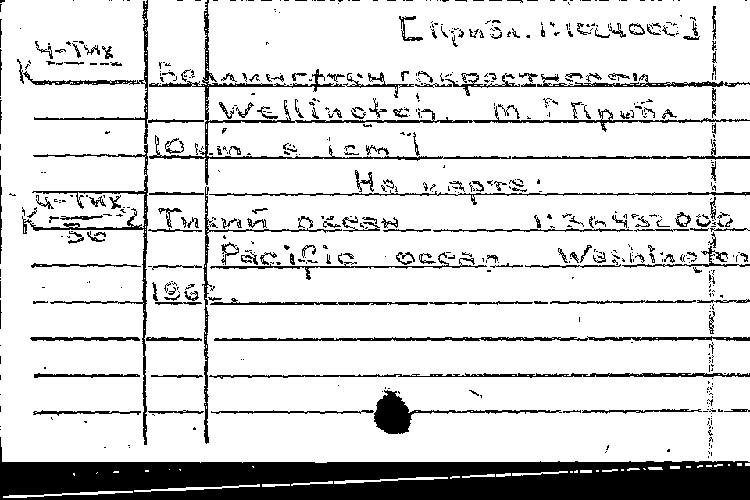 [Прибл. 1:1024000]
Ч-Тих
К Веллингтон [окрестности
Wellington. М. [Прибл
10 km. в 1 cm]
На карте:
Ч-Тих
К 2 Тихий океан 1:36432000
36
Pacific ocean. Washington
1962.